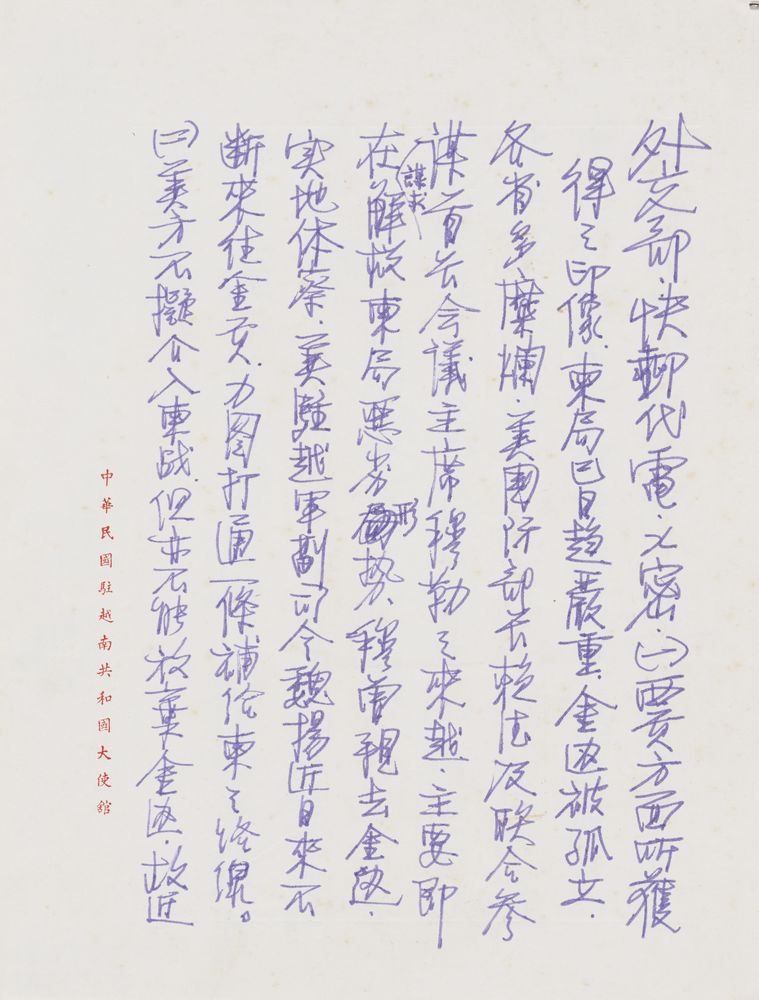 外交部、快郵代電、乂密、㈠西貢方面所獲
得之印像、柬局已日趨嚴重、金邊被孤立、
各省多糜爛、美國防部長賴德及聯合參
謀首長會議主席穆勒之來越、主要即
在謀求解救柬局惡劣形勢、穆曾親去金邊、
实地休察、美駐越軍副司令魏揚近日來不
断來往金貢、力图打通一條補給柬之路線。
㈡美方不擬介入柬战、但亦不能放棄金邊、故近
中華民國駐越南共和國大使館